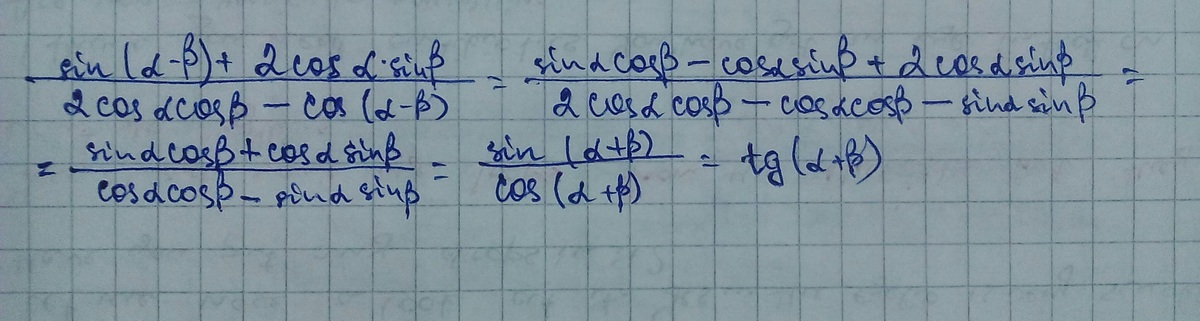 (sin(α-β)+2cosα·sinβ)/(2cosαcosβ-cos(α-β)) = (sinαcosβ-cosαsinβ+2cosαsinβ)/(2cosαcosβ-cosαcosβ-sinαsinβ) =
= (sinαcosβ+cosαsinβ)/(cosαcosβ-sinαsinβ) = sin(α+β)/cos(α+β) = tg(α+β)